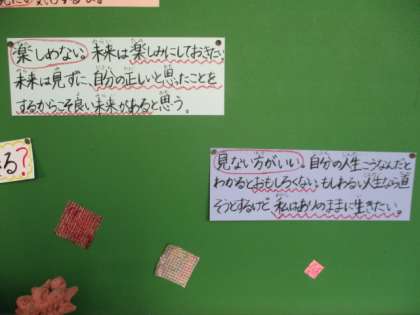 楽しめない。未来は楽しみにしておきたい。
未来は見ずに、自分の正しいと思ったことを
するからこそ良い未来があると思う。
る？
見ない方がいい。自分の人生こうなんだと
わかるとおもしろくない。もしわるい人生なら直
そうとするけど私はありのままに生きたい。